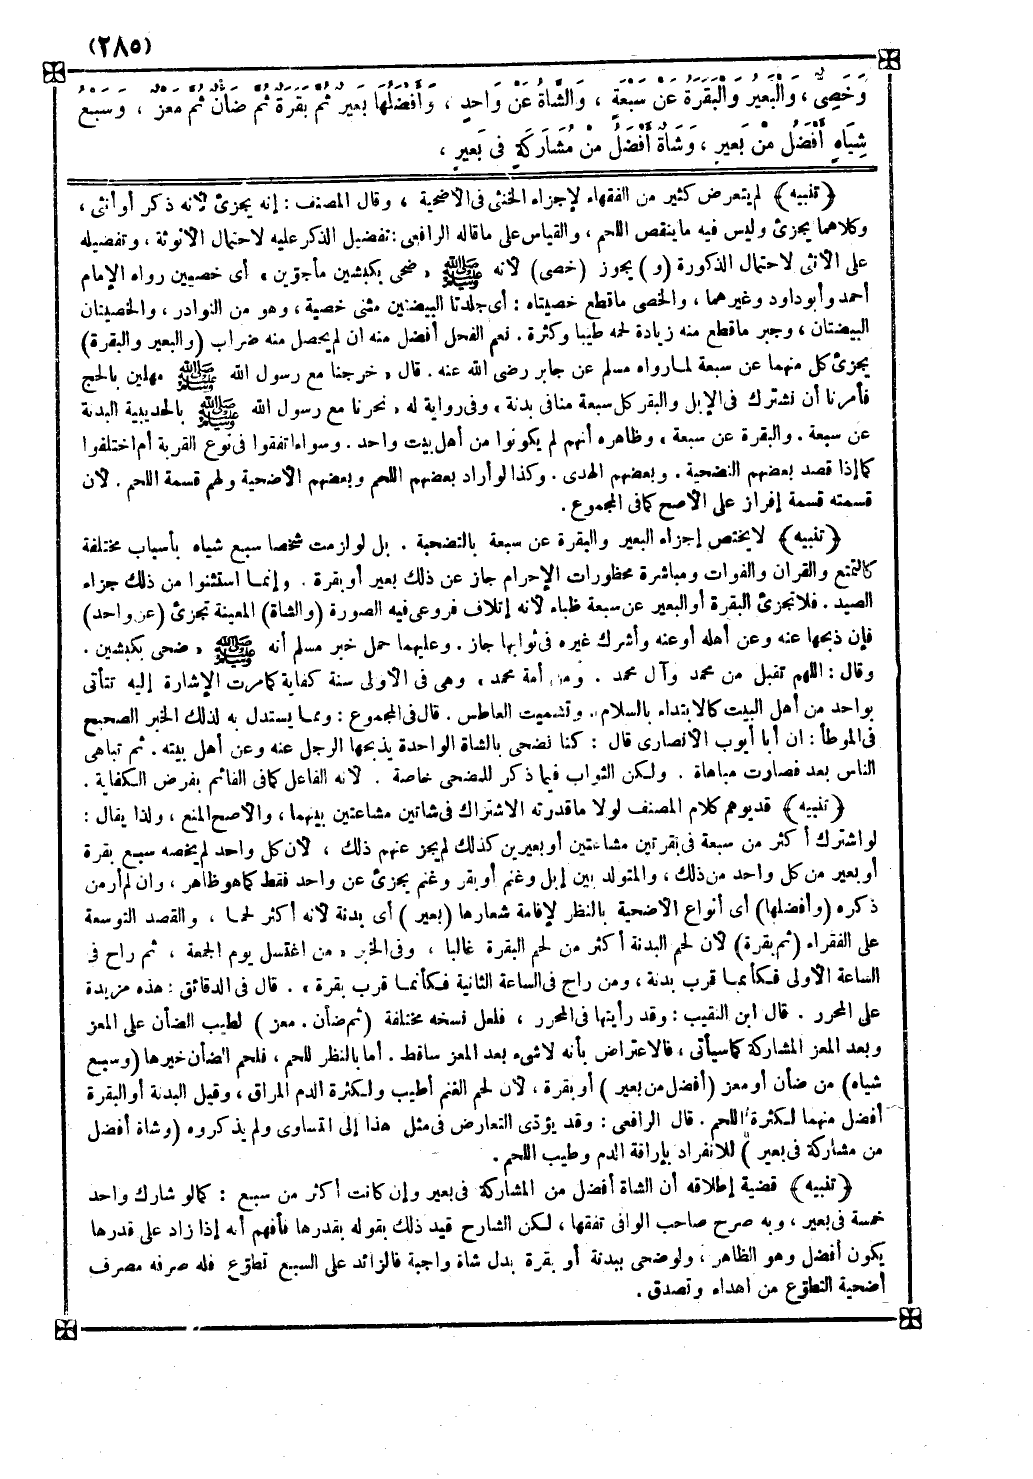 (٢٨٥)
وَخَصِيٌّ ، وَالْبَعِيرُ وَالْبَقَرَةُ عَنْ سَبْعَةٍ ، وَالشَّاةُ عَنْ وَاحِدٍ ، وَأَفْضَلُهَا بَعِيرٌ ثُمَّ بَقَرَةٌ ثُمَّ ضَأْنٌ ثُمَّ مَعْزٌ ، وَسَبْعُ
شِيَاهٍ أَفْضَلُ مِنْ بَعِيرٍ ، وَشَاةٌ أَفْضَلُ مِنْ مُشَارَكَةٍ فِى بَعِيرٍ ،
﴿ تنبيه ﴾ لم يتعرض كثير من الفقهاء لإجزاء الخنثى فى الأضحية ، وقال المصنف : إنه يجزئ لأنه ذكر أو أنثى ،
وكلاهما يجزئ وليس فيه ما ينقص اللحم ، والقياس على ما قاله الرافعى : تفضيل الذكر عليه لاحتمال الأنوثة ، وتفضيله
على الأنثى لاحتمال الذكورة (و) يجوز (خصى) لأنه ﷺ « ضحى بكبشين مأجوزين » أى خصيين رواه الإمام
أحمد وأبو داود وغيرهما ، والخصى ما قطع خصيتاه : أى جلدتا البيضتين مثنى خصية ، وهو من النوادر ، والخصيتان
البيضتان ، وجبر ما قطع منه زيادة لحمه طيبا وكثرة . نعم الفحل أفضل منه ان لم يحصل منه ضراب (والبعير والبقرة)
يجزئ كل منهما عن سبعة لما رواه مسلم عن جابر رضى الله عنه . قال « خرجنا مع رسول الله ﷺ مهلين بالحج
فأمرنا أن نشترك فى الإبل والبقر كل سبعة منا فى بدنة » وفى رواية له « نحرنا مع رسول الله ﷺ بالحديبية البدنة
عن سبعة . والبقرة عن سبعة » وظاهره أنهم لم يكونوا من أهل بيت واحد . وسواء اتفقوا فى نوع القربة أم اختلفوا
كما إذا قصد بعضهم التضحية . وبعضهم الهدى . وكذا لو أراد بعضهم اللحم وبعضهم الأضحية ولهم قسمة اللحم . لأن
قسمته قسمة إفراز على الأصح كما فى المجموع .
﴿ تنبيه ﴾ لا يختص إجزاء البعير والبقرة عن سبعة بالتضحية . بل لو لزمت شخصا سبع شياه بأسباب مختلفة
كالتمتع والقران والفوات ومباشرة محظورات الإحرام جاز عن ذلك بعير أو بقرة . وإنما استثنوا من ذلك جزاء
الصيد . فلا تجزئ البقرة أو البعير عن سبعة ظباء لأنه إتلاف فروعى فيه الصورة (والشاة) المعينة تجزئ (عن واحد)
فإن ذبحها عنه وعن أهله أو عنه وأشرك غيره فى ثوابها جاز . وعليهما حمل خبر مسلم أنه ﷺ « ضحى بكبشين .
وقال : اللهم تقبل من محمد وآل محمد . ومن أمة محمد » وهى فى الأولى سنة كفاية كما مرت الإشارة إليه تتأتى
بواحد من أهل البيت كالابتداء بالسلام . وتشميت العاطس . قال فى المجموع : ومما يستدل به لذلك الخبر الصحيح
فى الموطأ : ان أبا أيوب الأنصارى قال : كنا نضحى بالشاة الواحدة يذبحها الرجل عنه وعن أهل بيته . ثم تباهى
الناس بعد فصارت مباهاة . ولكن الثواب فيما ذكر للمضحى خاصة . لأنه الفاعل كما فى القائم بفرض الكفاية .
﴿ تنبيه ﴾ قد يوهم كلام المصنف لولا ما قدرته الاشتراك فى شاتين مشاعتين بينهما ، والأصح المنع ، ولذا يقال :
لو اشترك أكثر من سبعة فى بقرتين مشاعتين أو بعيرين كذلك لم يجز عنهم ذلك ، لأن كل واحد لم يخصه سبع بقرة
أو بعير من كل واحد من ذلك ، والمتولد بين إبل وغنم أو بقر وغنم يجزئ عن واحد فقط كما هو ظاهر ، وان لم أر من
ذكره (وأفضلها) أى أنواع الأضحية بالنظر لإقامة شعارها (بعير) أى بدنة لأنه أكثر لحما ، والقصد التوسعة
على الفقراء (ثم بقرة) لأن لحم البدنة أكثر من لحم البقرة غالبا ، وفى الخبر « من اغتسل يوم الجمعة ، ثم راح فى
الساعة الأولى فكأنما قرب بدنة ، ومن راح فى الساعة الثانية فكأنما قرب بقرة » . قال فى الدقائق : هذه مزيدة
على المحرر . قال ابن النقيب : وقد رأيتها فى المحرر ، فلعل نسخه مختلفة (ثم ضأن . معز) لطيب الضأن على المعز
وبعد المعز المشاركة كما سيأتى ، فالاعتراض بأنه لا شىء بعد المعز ساقط . أما بالنظر للحم ، فلحم الضأن خيرها (وسبع
شياه) من ضأن أو معز (أفضل من بعير) أو بقرة ، لأن لحم الغنم أطيب ولكثرة الدم المراق ، وقيل البدنة أو البقرة
أفضل منهما لكثرة اللحم . قال الرافعى : وقد يؤدّى التعارض فى مثل هذا إلى التساوى ولم يذكروه (وشاة أفضل
من مشاركة فى بعير) للانفراد بإراقة الدم وطيب اللحم .
﴿ تنبيه ﴾ قضية إطلاقه أن الشاة أفضل من المشاركة فى بعير وإن كانت أكثر من سبع : كما لو شارك واحد
خمسة فى بعير ، وبه صرح صاحب الوافى تفقها ، لكن الشارح قيد ذلك بقوله بقدرها فأفهم أنه إذا زاد على قدرها
يكون أفضل وهو الظاهر ، ولو ضحى ببدنة أو بقرة بدل شاة واجبة فالزائد على السبع تطوّع فله صرفه مصرف
أضحية التطوّع من اهداء وتصدق .